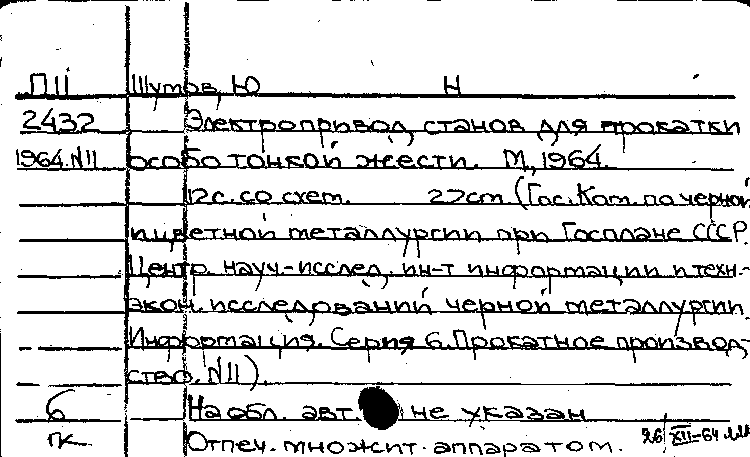 П11 Шутов, Ю Н
2432 Электропривод станов для прокатки
1964.N11 особо тонкой жести. М., 1964.
12с. со схем. 27см (Гос. Ком. по черной
и цветной металлургии при Госплане СССР.
Центр. науч.-исслед. ин-т информации и техн.-
экон. исследований черной металлургии.
Информация. Серия 6. Прокатное производ-
ство. N11).
6 На обл. авт. не указан
пк Отпеч. множит. аппаратом. 26/XII-64